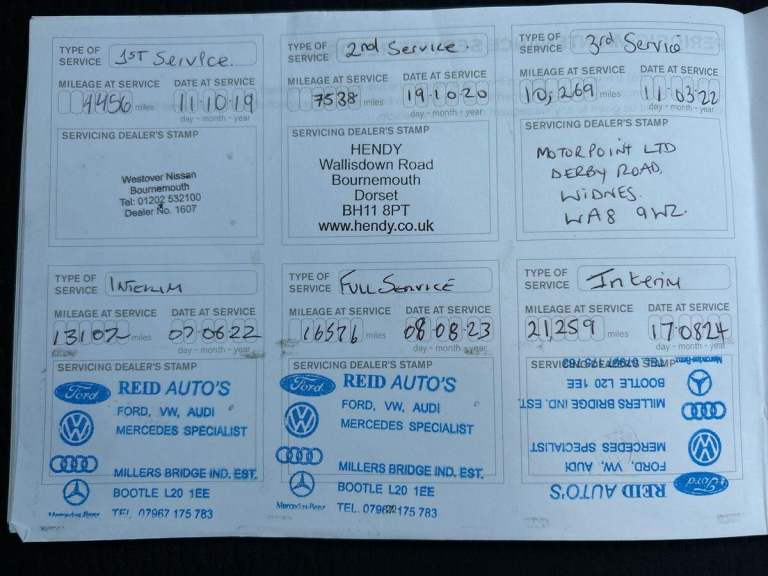 TYPE OF SERVICE 1st Service.
MILEAGE AT SERVICE DATE AT SERVICE
4456 miles 11·10·19
day - month - year
SERVICING DEALER'S STAMP
Westover Nissan
Bournemouth
Tel: 01202 532100
Dealer No. 1607
TYPE OF SERVICE 2nd Service.
MILEAGE AT SERVICE DATE AT SERVICE
7538 miles 19·10·20
day - month - year
SERVICING DEALER'S STAMP
HENDY
Wallisdown Road
Bournemouth
Dorset
BH11 8PT
www.hendy.co.uk
TYPE OF SERVICE 3rd Service
MILEAGE AT SERVICE DATE AT SERVICE
10,269 miles 11·03·22
day - month - year
SERVICING DEALER'S STAMP
MOTORPOINT LTD
DERBY ROAD,
WIDNES.
WA8 9WZ.
TYPE OF SERVICE INTERIM
MILEAGE AT SERVICE DATE AT SERVICE
13102 miles 07·06·22
day - month - year
SERVICING DEALER'S STAMP
Ford REID AUTO'S
FORD, VW, AUDI
MERCEDES SPECIALIST
MILLERS BRIDGE IND. EST.
BOOTLE L20 1EE
Mercedes-Benz TEL. 07967 175 783
TYPE OF SERVICE FULL SERVICE
MILEAGE AT SERVICE DATE AT SERVICE
16576 miles 08·08·23
day - month - year
SERVICING DEALER'S STAMP
Ford REID AUTO'S
FORD, VW, AUDI
MERCEDES SPECIALIST
MILLERS BRIDGE IND. EST.
BOOTLE L20 1EE
Mercedes-Benz TEL. 07967 175 783
TYPE OF SERVICE Interim
MILEAGE AT SERVICE DATE AT SERVICE
21,259 miles 17·08 24
day - month - year
SERVICING DEALER'S STAMP
Ford REID AUTO'S
FORD, VW, AUDI
MERCEDES SPECIALIST
MILLERS BRIDGE IND. EST.
BOOTLE L20 1EE
Mercedes-Benz TEL. 07967 175 783